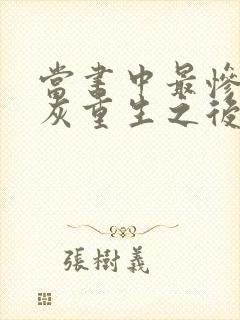 當書中最慘
灰重生之後
張樹義